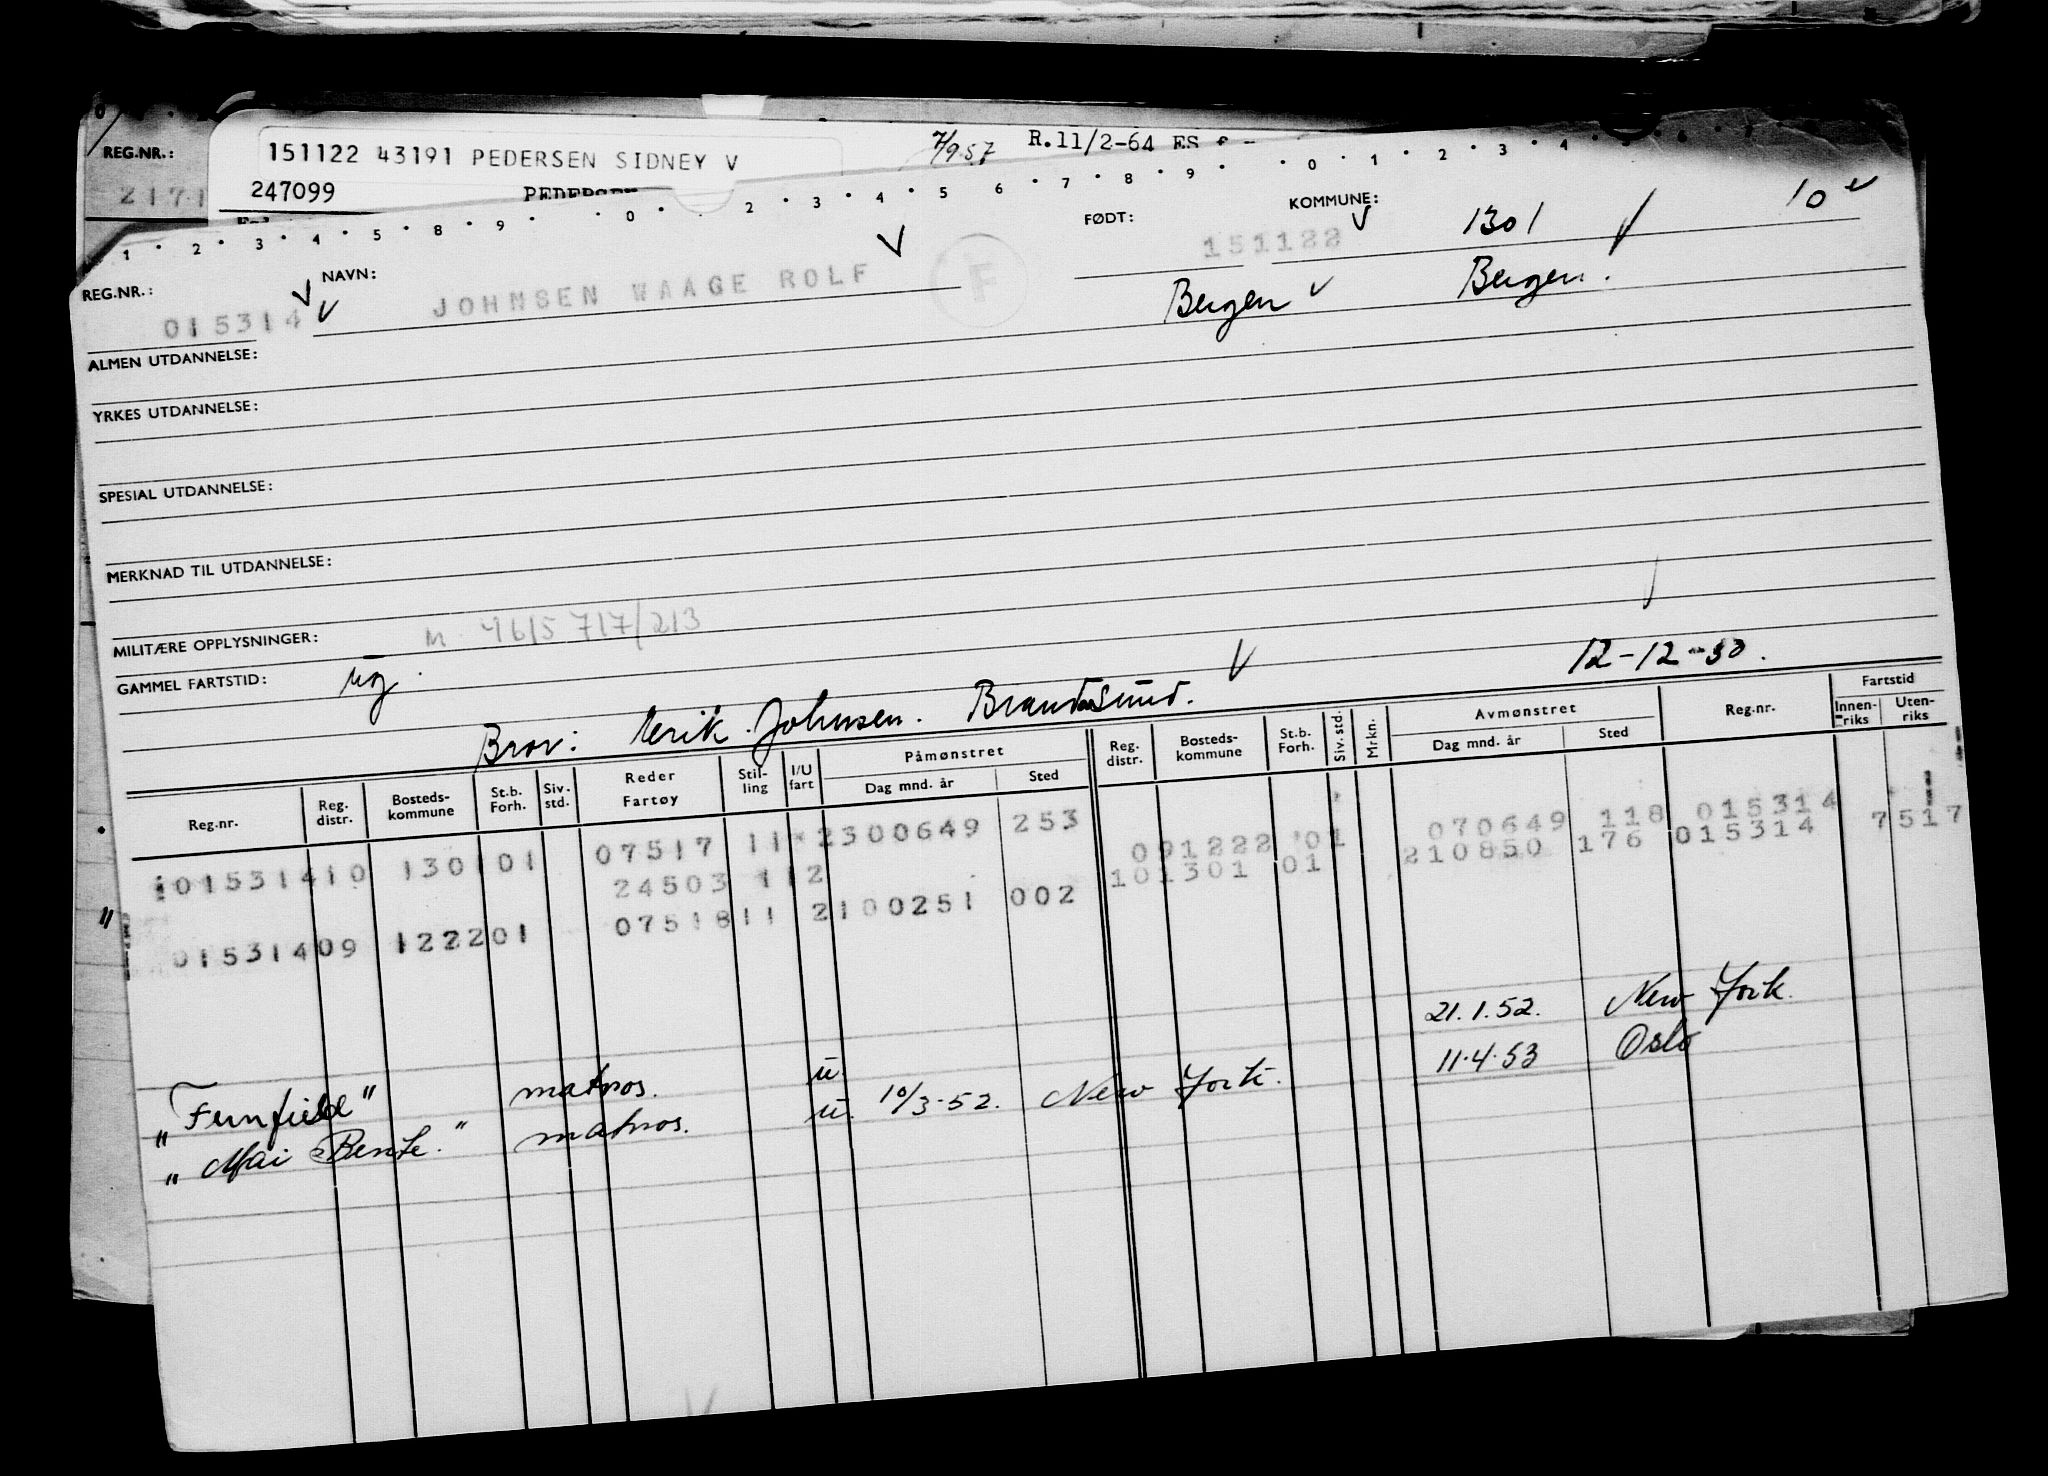 REG.NR.:
2171
151122 43191 PEDERSEN SIDNEY V
7/9.57 R.11/2-64 ES
247099 PEDERSEN
1 · 2 · 3 · 4 · 5 · 8 · 9 · · 0 · · 2 · 3 · 4 · 5 6 · 7 · 8 · 9 · · 0 · 1 · 2 · 3 · 4 · 5 · 6 · 7
REG.NR.: NAVN: FØDT: KOMMUNE:
015314 JOHNSEN WAAGE ROLF F 151122 1301 10
Bergen Bergen.
ALMEN UTDANNELSE:
YRKES UTDANNELSE:
SPESIAL UTDANNELSE:
MERKNAD TIL UTDANNELSE:
MILITÆRE OPPLYSNINGER: M 4615 717/213
GAMMEL FARTSTID: ug.
12-12-50.
Bror: Erik Johnsen. Brandasund.
Reg.nr. Reg. distr. Bosteds- kommune St.b. Forh. Siv. std. Reder Fartøy Stil- ling I/U fart Påmønstret Dag mnd. år Sted Reg. distr. Bosteds- kommune St.b. Forh. Siv. std. Mrkn. Avmønstret Dag mnd. år Sted Reg.nr. Fartstid Innen- riks Uten- riks
01531410 130101 07517 11 2300649 253 091222 01 070649 118 015314 7517
24503 112 101301 01 210850 176 015314
01531409 122201 07518 11 2100251 002
21.1.52. New York.
"Fernfield" matros. u. 11.4.53 Oslo
"Mai Bente." matros. u. 10/3-52. New York.